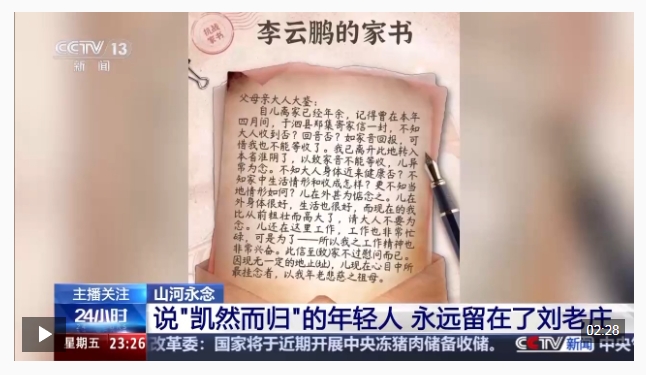 CCTV 13
新闻
抗战
家书
李云鹏的家书
父母亲大人大鉴：
自儿离家已经年余，记得曾在本年
四月间，于泗县邸集寄家信一封，不知
大人收到否？回音否？如家音回报，可
惜我也不能等收了。我已离开此地转入
本省淮阴了，以致家音不能等收，儿异
常为念。不知大人身体近来健康否？不
知家中生活情形和收成怎样？更不知当
地情形如何？儿在外甚为惦念之。儿在
外身体很好，生活也很好，而现在的我
比从前粗壮而高大了，请大人不要为
念。儿还在这里工作，工作也非常忙
碌，可是为了——所以我之工作精神也
非常兴奋。此信至(致)家不过慰问而已。
因现无一定的地止(址)，儿现在心目中所
最挂念者，以我年老悲慈之祖母。
主播关注
山河永念
24小时
说"凯然而归"的年轻人 永远留在了刘老庄
02:28
星期五 23:26
改革委：国家将于近期开展中央冻猪肉储备收储。
CCTV新闻
中央